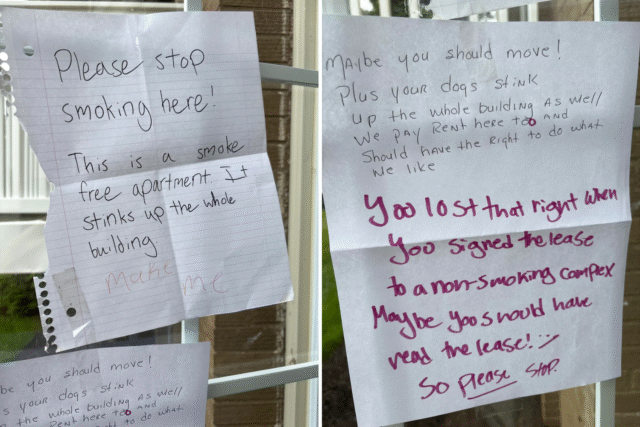 Please stop
smoking here!
This is a smoke
free apartment. It
stinks up the whole
building.
Make me
be you should move!
s your dogs stink
the whole building As well
Rent here too AND
to do what
MAybe you should move!
Plus your dogs stink
up the whole building As well
We PAY Rent here too AND
Should have the Right to do what
We like
Yoo lost that right when
Yoo signed the lease
to a non-smoking compex
Maybe yoo should have
read the lease! :)
So please stop.